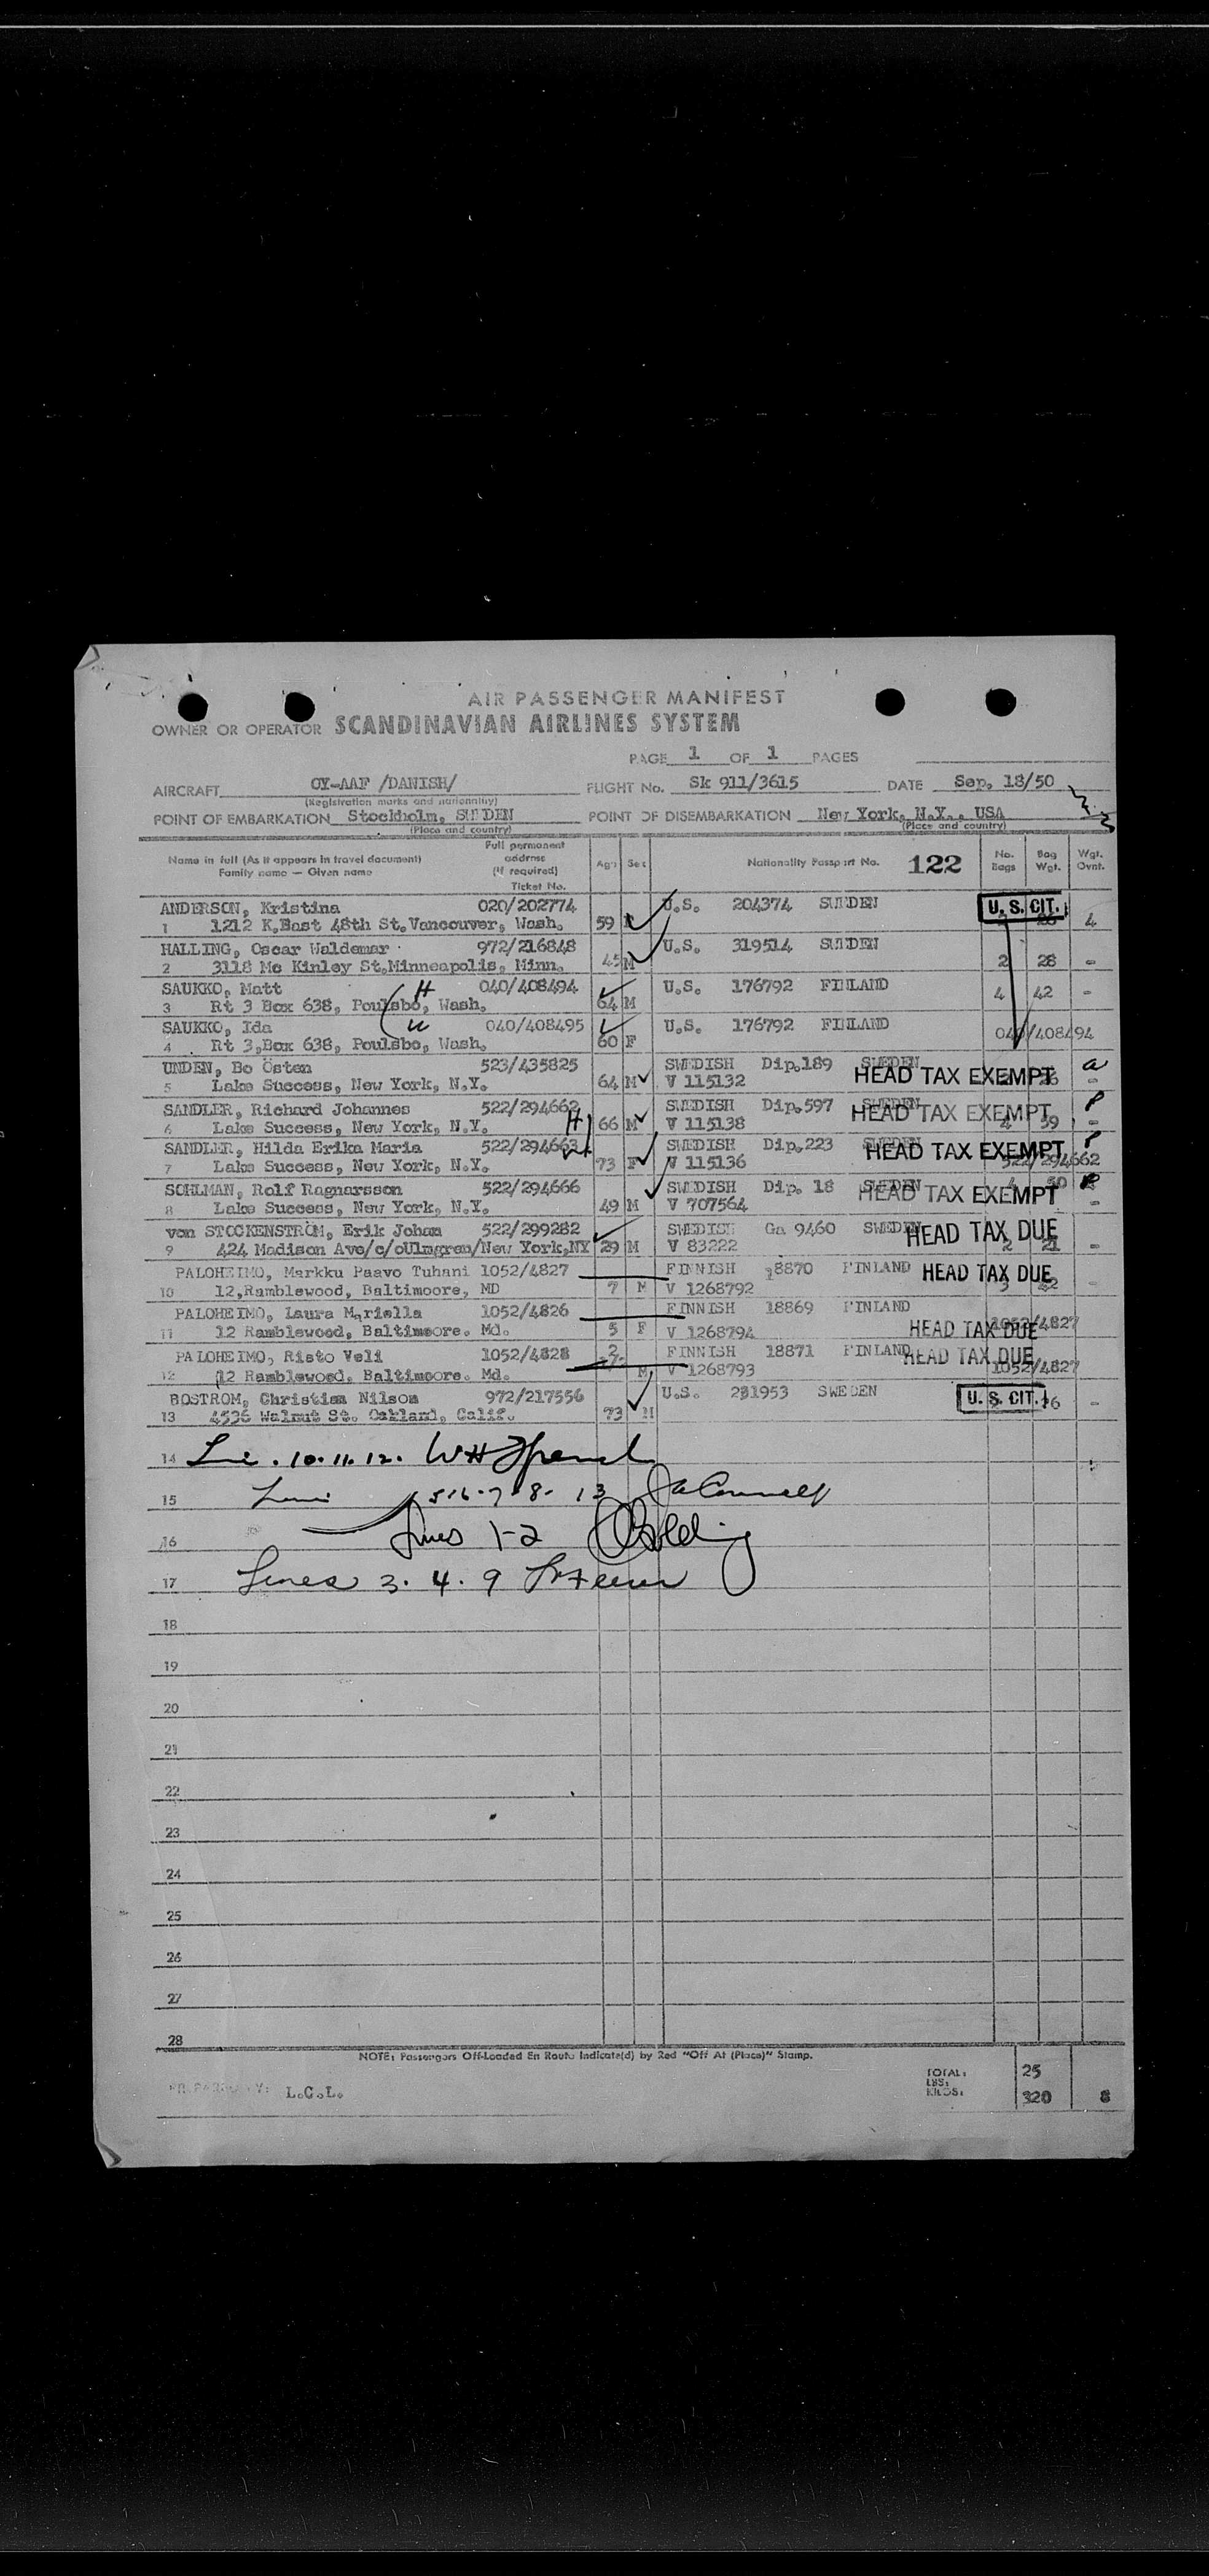 AIR PASSENGER MANIFEST
OWNER OR OPERATOR SCANDINAVIAN AIRLINES SYSTEM
PAGE 1 OF 1 PAGES
AIRCRAFT OY-AAF /DANISH/ FLIGHT No. Sk 911/3615 DATE Sep. 18/50
(Registration marks and nationality)
POINT OF EMBARKATION Stockholm, SWEDEN POINT OF DISEMBARKATION New York, N.Y., USA
(Place and country) (Place and country)
Name in full (As it appears in travel document) Family name — Given name
Full permanent address (if required) Ticket No.
Age Sex Nationality Passport No. 122 No. Bags Bag Wgt. Wgt. Ovnt.
ANDERSON, Kristina 020/202774 U.S. 204374 SWEDEN U. S. CIT.
1 1212 K.East 48th St.Vancouver, Wash. 59 4
HALLING, Oscar Waldemar 972/216848 U.S. 319514 SWEDEN
2 3118 Mc Kinley St.Minneapolis, Minn. 45 M 2 28 -
SAUKKO, Matt H 040/408494 U.S. 176792 FINLAND
3 Rt 3 Box 638, Poulsbo, Wash. 64 M 4 42 -
SAUKKO, Ida 040/408495 U.S. 176792 FINLAND
4 Rt 3,Box 638, Poulsbo, Wash. 60 F 040/408494
UNDEN, Bo Östen 523/435825 SWEDISH Dip.189 SWEDEN
5 Lake Success, New York, N.Y. 64 M V 115132 HEAD TAX EXEMPT -
SANDLER, Richard Johannes 522/294662 SWEDISH Dip.597 SWEDEN
6 Lake Success, New York, N.Y. H 66 M V 115138 HEAD TAX EXEMPT 4 59 -
SANDLER, Hilda Erika Maria 522/294663 SWEDISH Dip.223 SWEDEN HEAD TAX EXEMPT
7 Lake Success, New York, N.Y. 73 F V 115136 522/294662
SOHLMAN, Rolf Ragnarsson 522/294666 SWEDISH Dip. 18 SWEDEN HEAD TAX EXEMPT
8 Lake Success, New York, N.Y. 49 M V 707564 -
von STOCKENSTRÖM, Erik Johan 522/299282 SWEDISH Ga 9460 SWEDEN HEAD TAX DUE
9 424 Madison Ave/c/oUlmgren/New York,NY 29 M V 83222 2 21 -
PALOHEIMO, Markku Paavo Tuhani 1052/4827 FINNISH 18870 FINLAND HEAD TAX DUE
10 12,Ramblewood, Baltimoore, MD 7 M V 1268792 3 42 -
PALOHEIMO, Laura Mariella 1052/4826 FINNISH 18869 FINLAND
11 12 Ramblewood, Baltimoore. Md. 5 F V 1268794 HEAD TAX DUE 1052/4827
PALOHEIMO, Risto Veli 1052/4828 2 FINNISH 18871 FINLAND HEAD TAX DUE
12 12 Ramblewood, Baltimoore. Md. M V 1268793 1052/4827
BOSTROM, Christian Nilson 972/217556 U.S. 231953 SWEDEN U. S. CIT.
13 4536 Walnut St. Oakland, Calif. 73 M 16 -
14 10. 11. 12.
15 5-6-7-8-13
16 Lines 1-2
17 Lines 3. 4. 9
18
19
20
21
22
23
24
25
26
27
28
NOTE: Passengers Off-Loaded En Route Indicate(d) by Red "Off At (Place)" Stamp.
PREPARED BY: L.C.L.
TOTAL: 25
LBS:
KILOS: 320 8